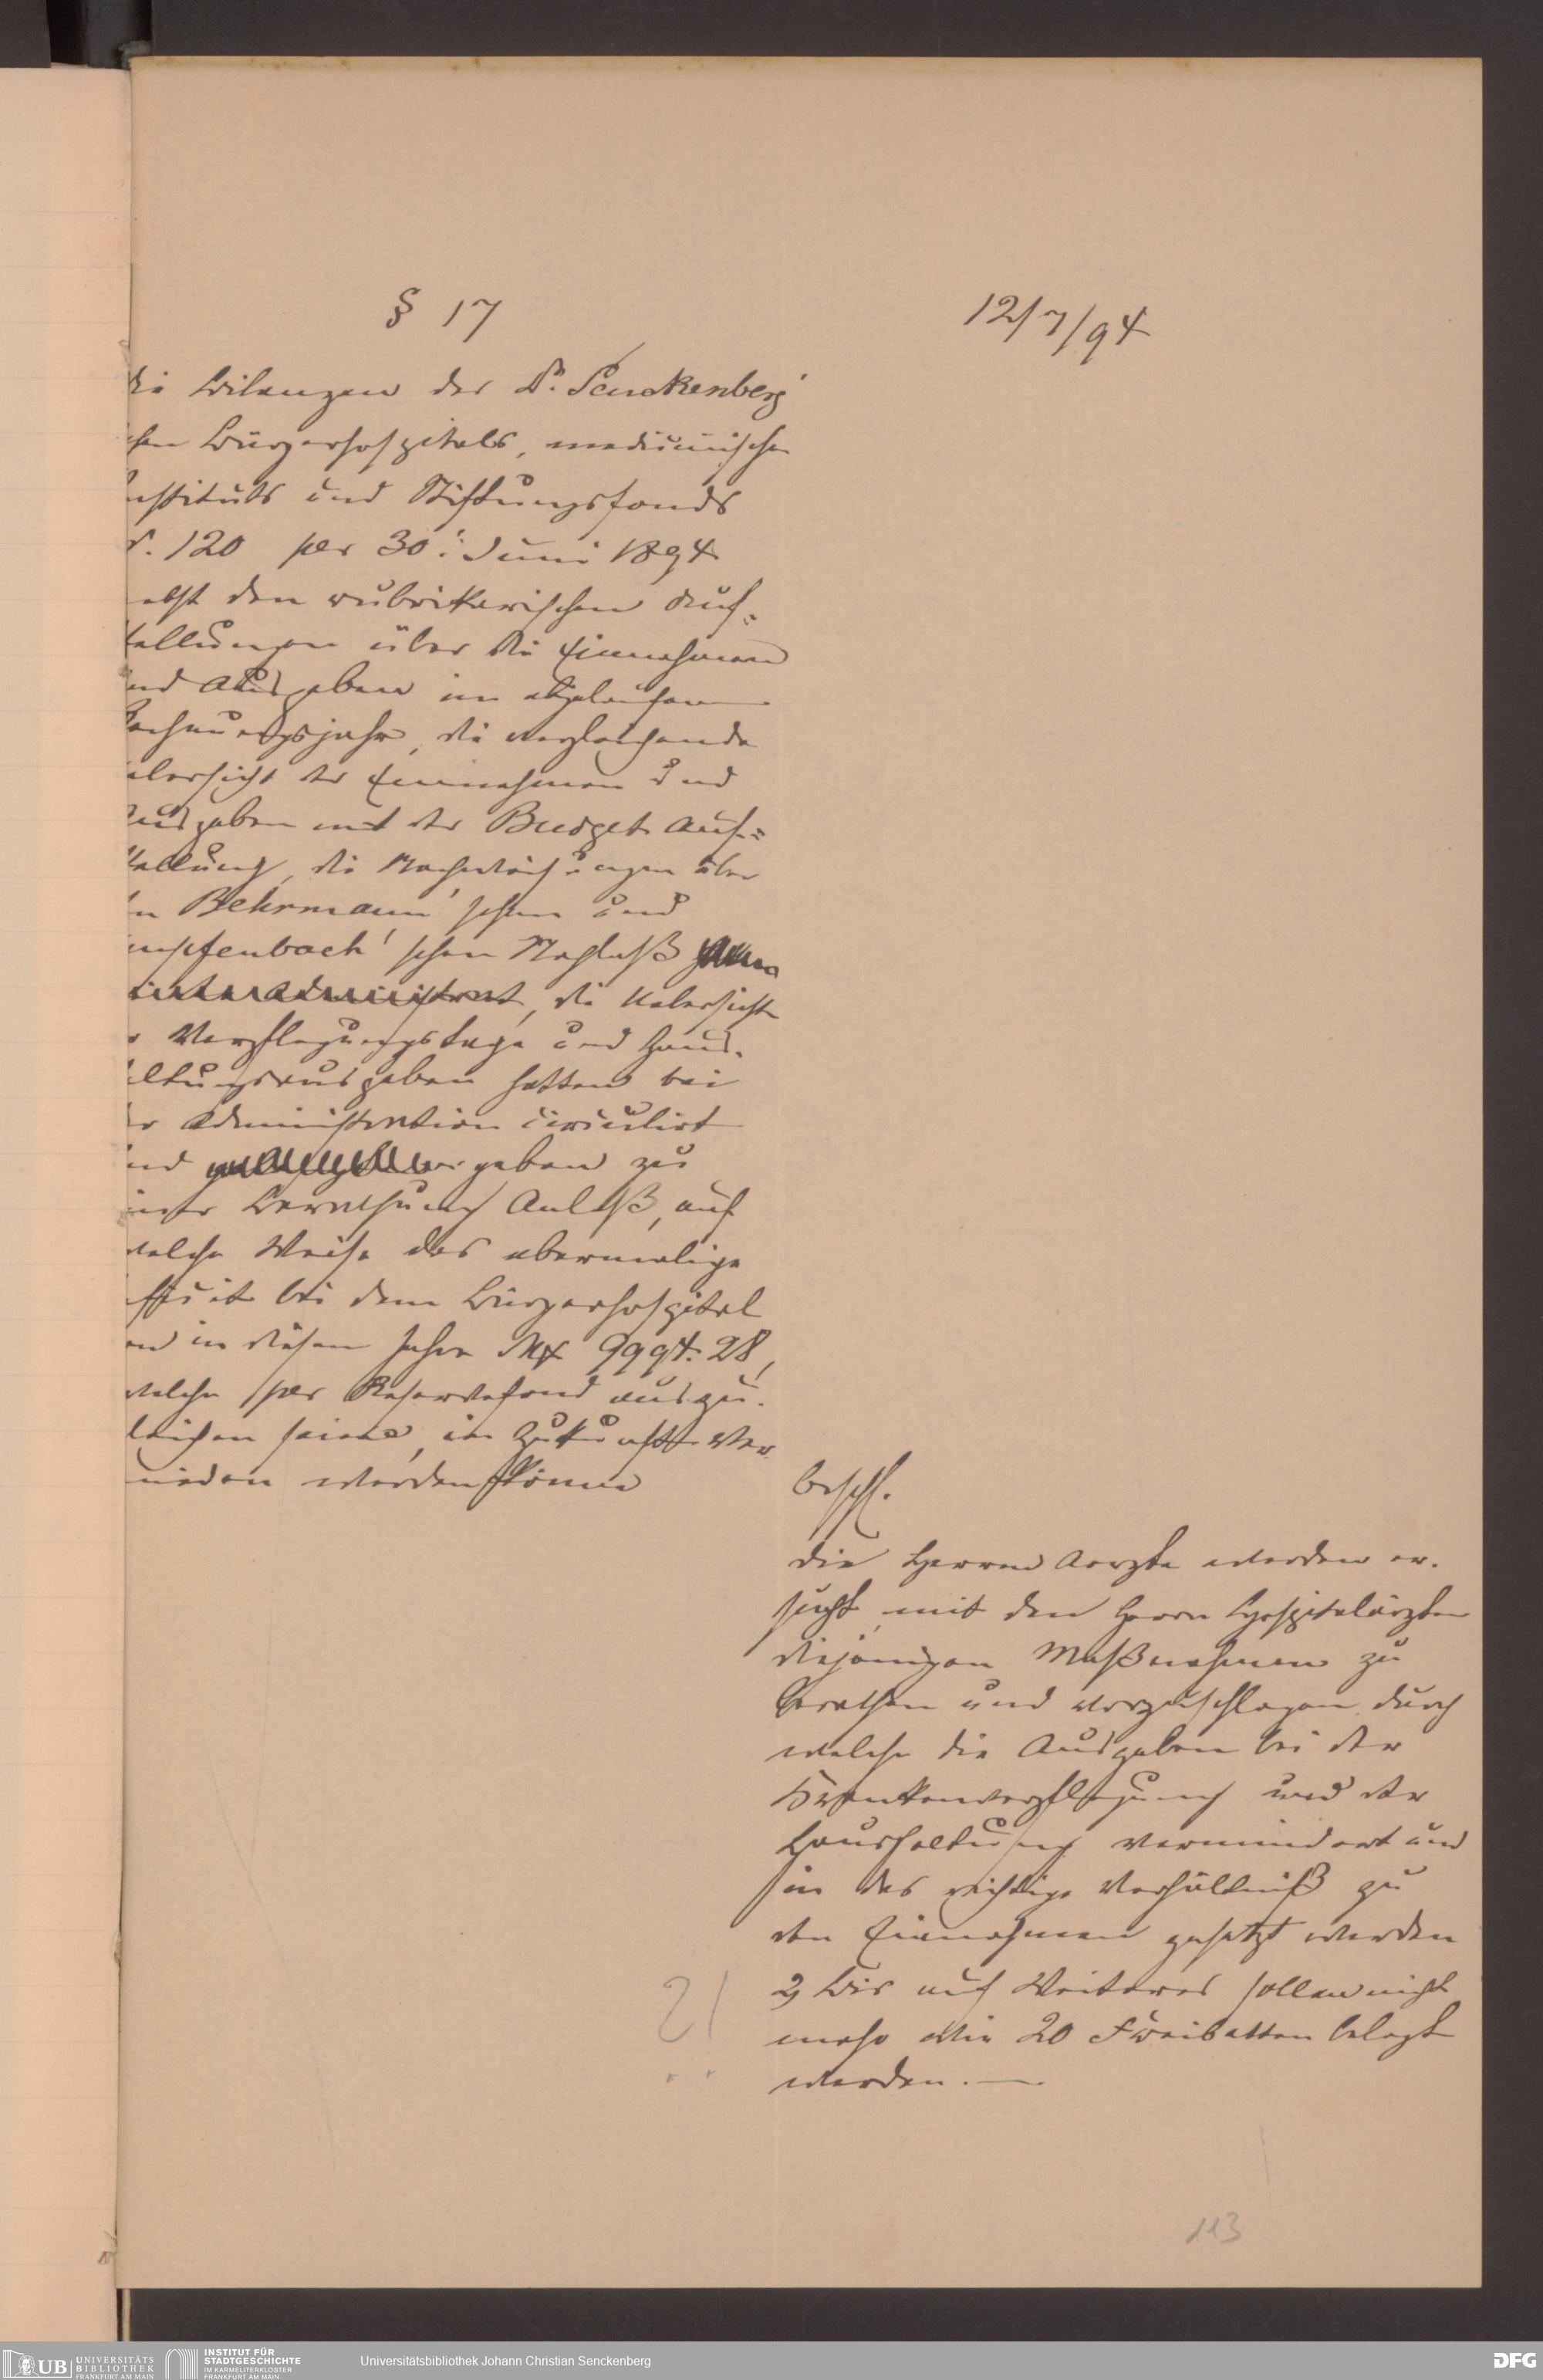 § 17
12/7/94
die Bilanzen des Dr. Senckenberg'
schen Bürgerhospitals, medicinischen
Instituts und Stiftungsfonds
S. 120 per 30. Juni 1894
nebst den rubrikarischen Auf-
stellungen über die Einnahmen
und Ausgaben im abgelaufenen
Rechnungsjahr, die vergleichende
Uebersicht der Einnahmen und
Ausgaben mit der Budget Auf-
stellung, die Nachweisungen über
den Behrmann'schen und
umpfenbach'schen Nachlaß
die Uebersicht
der Verpflegungstage und Haus-
haltungsausgaben hatten bei
der Administration circulirt
und geben zu
einer Berathung Anlaß, auf
welche Weise das abermalige
Deficit bei dem Bürgerhospital
von in diesem Jahre Mk 9994.28,
welche per Reservefond auszu-
gleichen seien, in Zukunft ver
mieden werden könne
Beschl.
Die Herren Aerzte werden er-
sucht, mit den Herrn Hospitalärzten
diejenigen Maßnahmen zu
berathen und vorzuschlagen, durch
welche die Ausgaben bei der
Krankenverpflegung und der
Haushaltung vermindert und
in das richtige Verhältniß zu
den Einnahmen gesetzt werden
2, Bis auf Weiteres sollen nicht
mehr wie 20 Freibetten belegt
werden. —
?!
113
UB UNIVERSITÄTS
BIBLIOTHEK
FRANKFURT AM MAIN
INSTITUT FÜR
STADTGESCHICHTE
IM KARMELITERKLOSTER
FRANKFURT AM MAIN
Universitätsbibliothek Johann Christian Senckenberg
DFG